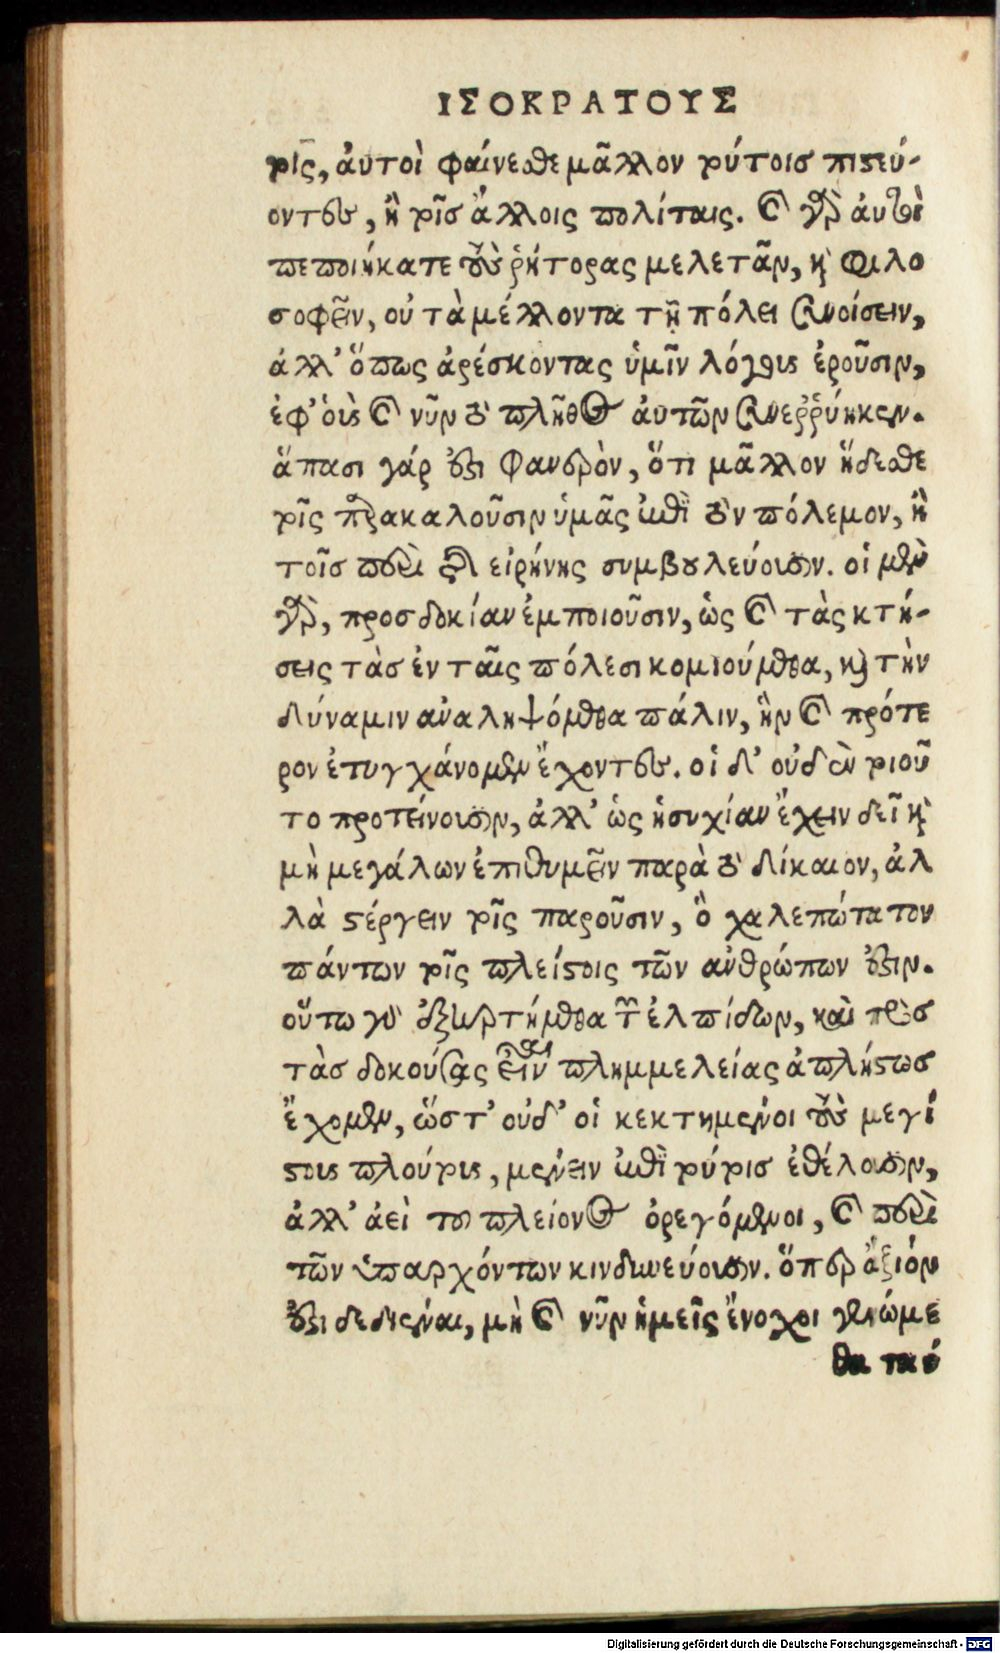 ΙΣΟΚΡΑΤΟΥΣ
τοῖς, ἀυτοὶ φαίνεσθε μᾶλλον τούτοισ πιστεύ-
οντες, ἢ τοῖσ ἄλλοις πολίταις. καὶ γὰρ ἀυτοὶ
πεποιήκατε τοὺς ῥήτορας μελετᾶν, καὶ φιλο
σοφεῖν, οὐ τὰ μέλλοντα τῇ πόλει συνοίσειν,
ἀλλ' ὅπως ἀρέσκοντας ὑμῖν λόγους ἐροῦσιν,
ἐφ' οὓς καὶ νῦν τὸ πλῆθος ἀυτῶν συνεῤῥύηκεν.
ἅπασι γάρ ἐστι φανερὸν, ὅτι μᾶλλον ἥδεσθε
τοῖς παρακαλοῦσιν ὑμᾶς ἐπὶ τὸν πόλεμον, ἢ
τοῖσ περὶ τῆς εἰρήνης συμβουλεύουσιν. οἱ μὲν
γὰρ, προσδοκίαν ἐμποιοῦσιν, ὡς καὶ τὰς κτή-
σεις τὰσ ἐν ταῖς πόλεσι κομιούμεθα, καὶ τὴν
δύναμιν ἀναληψόμεθα πάλιν, ἣν καὶ πρότε
ρον ἐτυγχάνομεν ἔχοντες. οἱ δ' οὐδὲν τοιοῦ
το προτείνουσιν, ἀλλ' ὡς ἡσυχίαν ἔχειν δεῖ καὶ
μὴ μεγάλων ἐπιθυμεῖν παρὰ τὸ δίκαιον, ἀλ
λὰ στέργειν τοῖς παροῦσιν, ὃ χαλεπώτατον
πάντων τοῖς πλείστοις τῶν ἀνθρώπων ἐστιν.
οὕτω γὰρ ἐξηρτήμεθα τῶν ἐλπίδων, καὶ πρὸσ
τὰσ δοκούσας εἶναι πλημμελείας ἀπλήστωσ
ἔχομεν, ὥστ' οὐδ' οἱ κεκτημένοι τοὺς μεγί
στους πλούτους, μένειν ἐπὶ τούτοισ ἐθέλουσιν,
ἀλλ' ἀεὶ του πλείονος ὀρεγόμενοι, καὶ περὶ
τῶν ὑπαρχόντων κινδυνεύουσιν. ὅπερ ἄξιόν
ἐστι δεδιέναι, μὴ καὶ νῦν ἡμεῖς ἔνοχοι γενώμε
θα ταύ
Digitalisierung gefördert durch die Deutsche Forschungsgemeinschaft - DFG